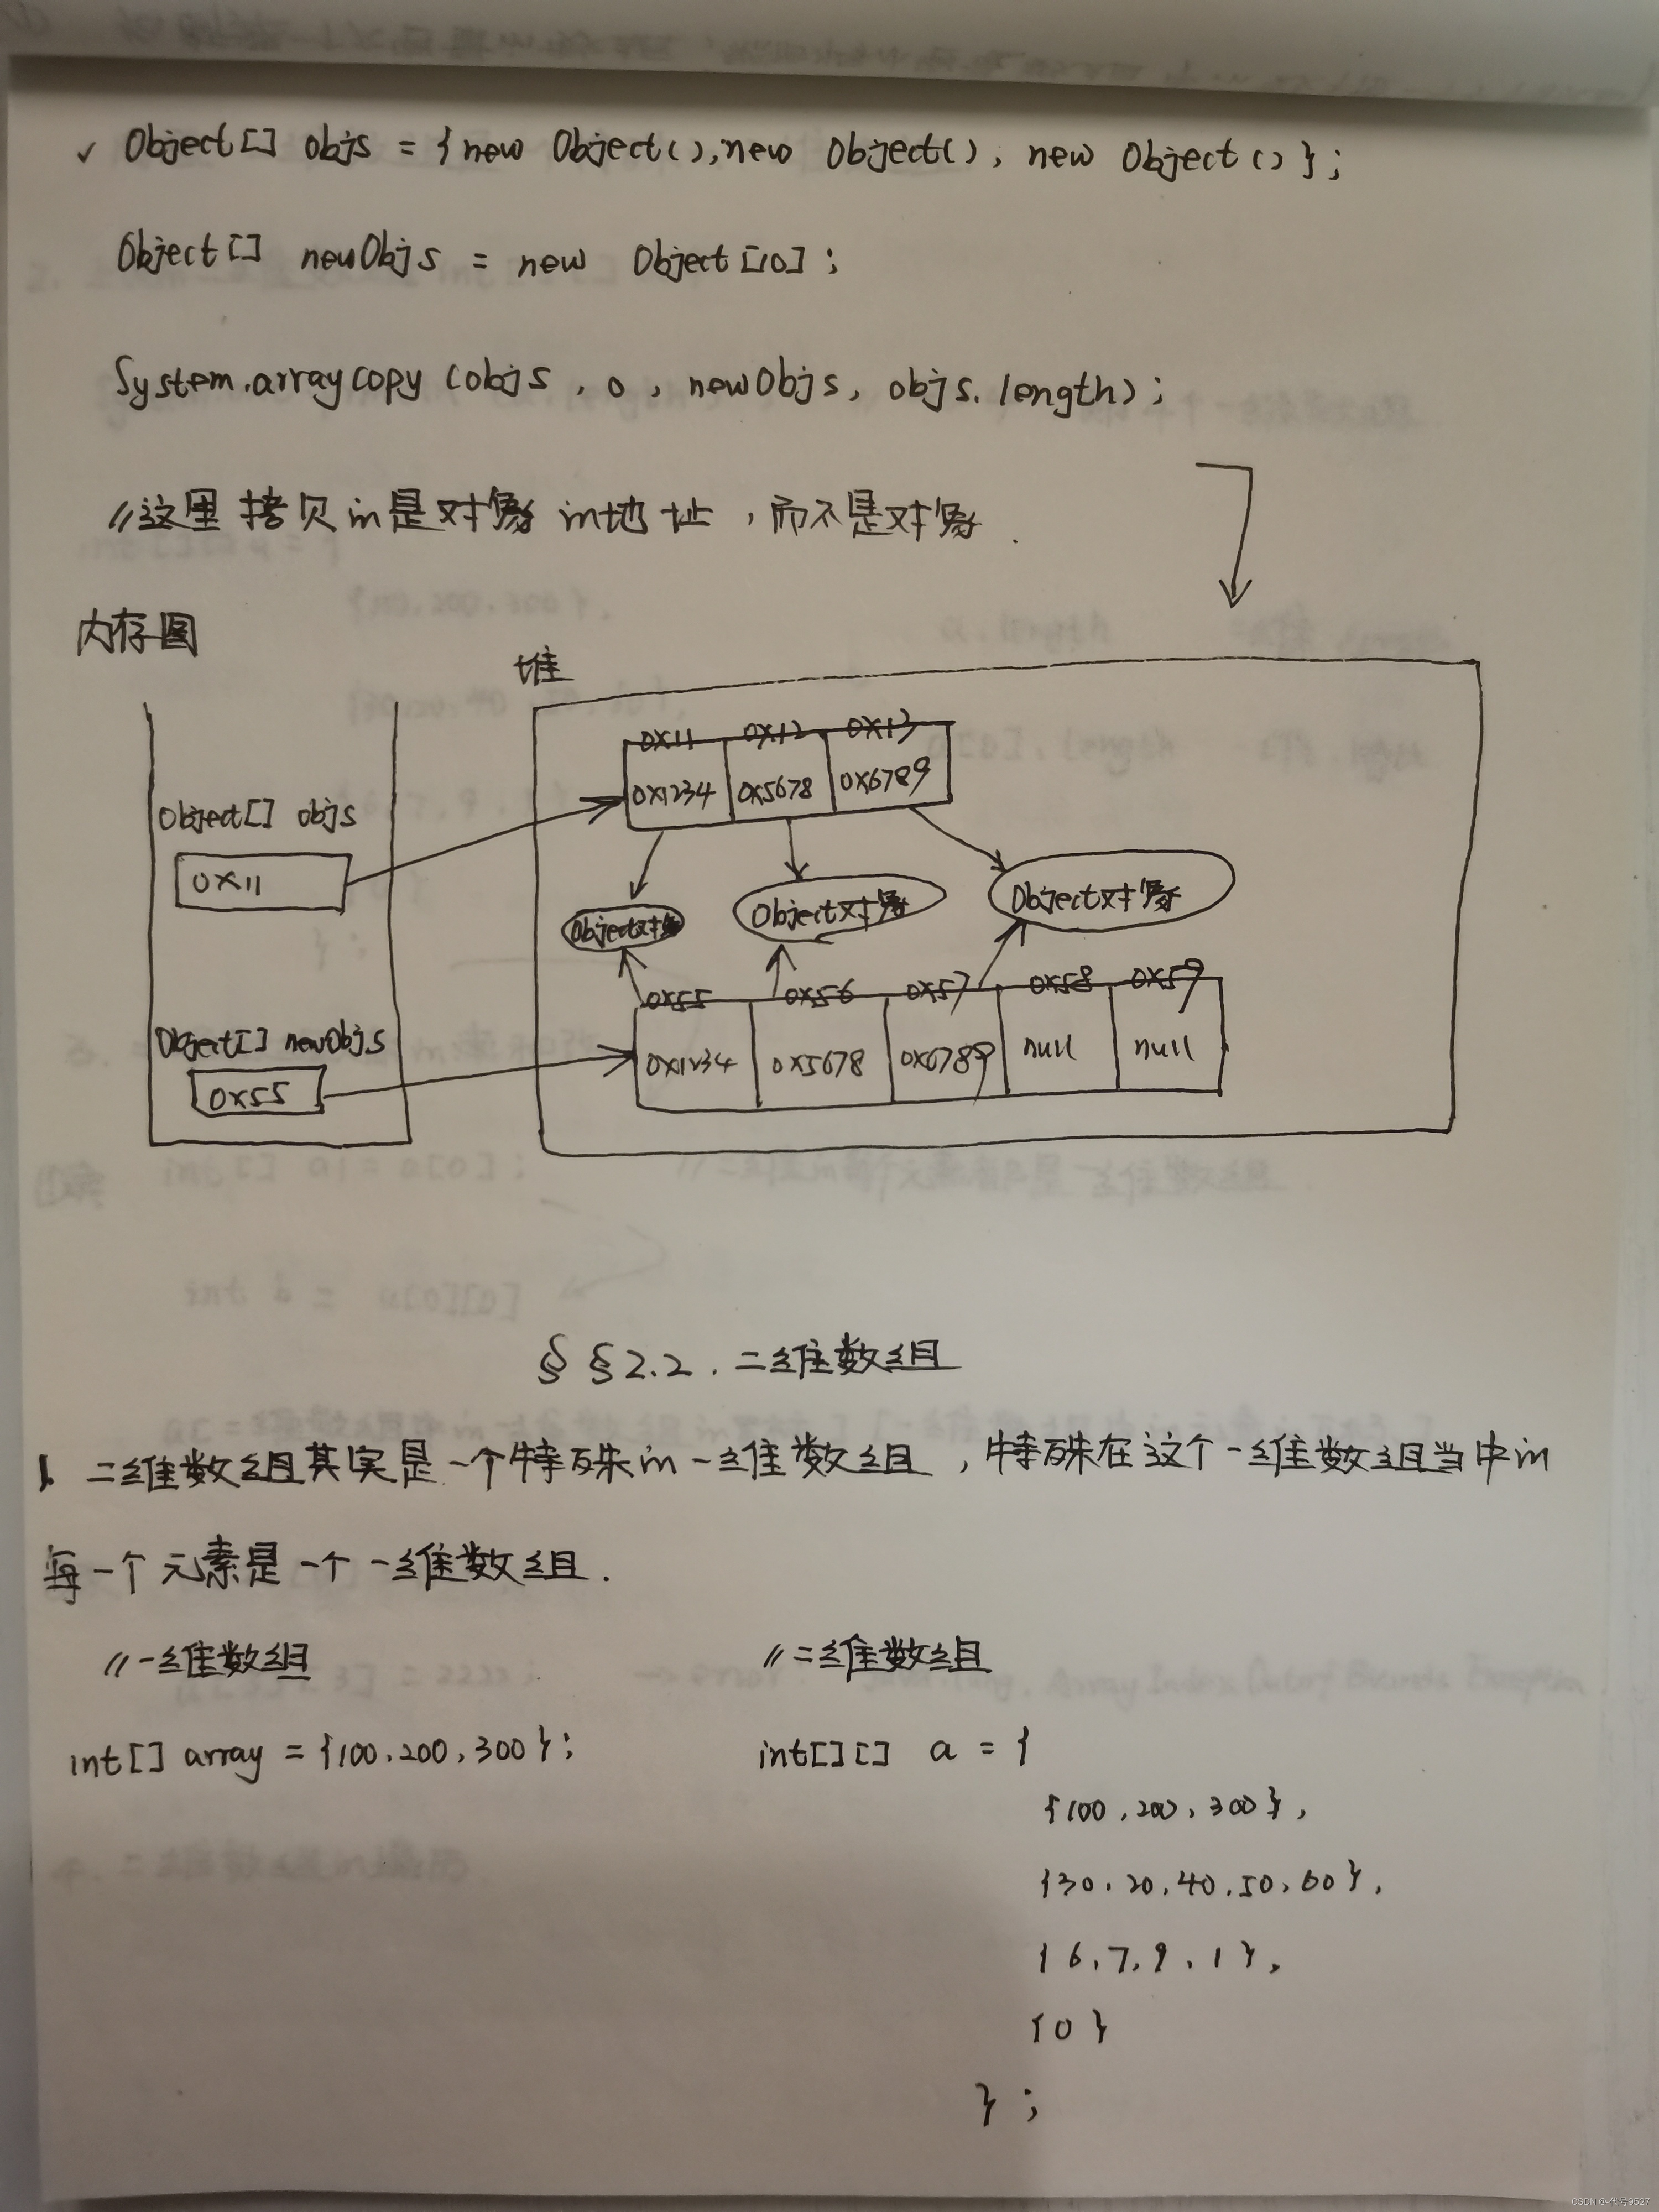 ✓ Object[] objs = {new Object(), new Object(), new Object()};
Object[] newObjs = new Object[10];
System.arraycopy(objs, 0, newObjs, objs.length);
//这里拷贝m是对象m地址，而不是对象.
内存图
堆
0x11 0x12 0x13
0x1234 0x5678 0x6789
Object[] objs
0x11
Object对象 Object对象 Object对象
0x55 0x56 0x57 0x58 0x59
Object[] newObjs
0x1234 0x5678 0x6789 null null
0x55
§ §2.2. 二维数组
1. 二维数组其实是一个特殊m一维数组，特殊在这个一维数组当中m
每一个元素是一个一维数组.
//一维数组 //二维数组
int[] array = {100,200,300}; int[][] a = {
{100,200,300},
{30,20,40,50,60},
{6,7,9,1},
{0}
};
CSDN @代号9527